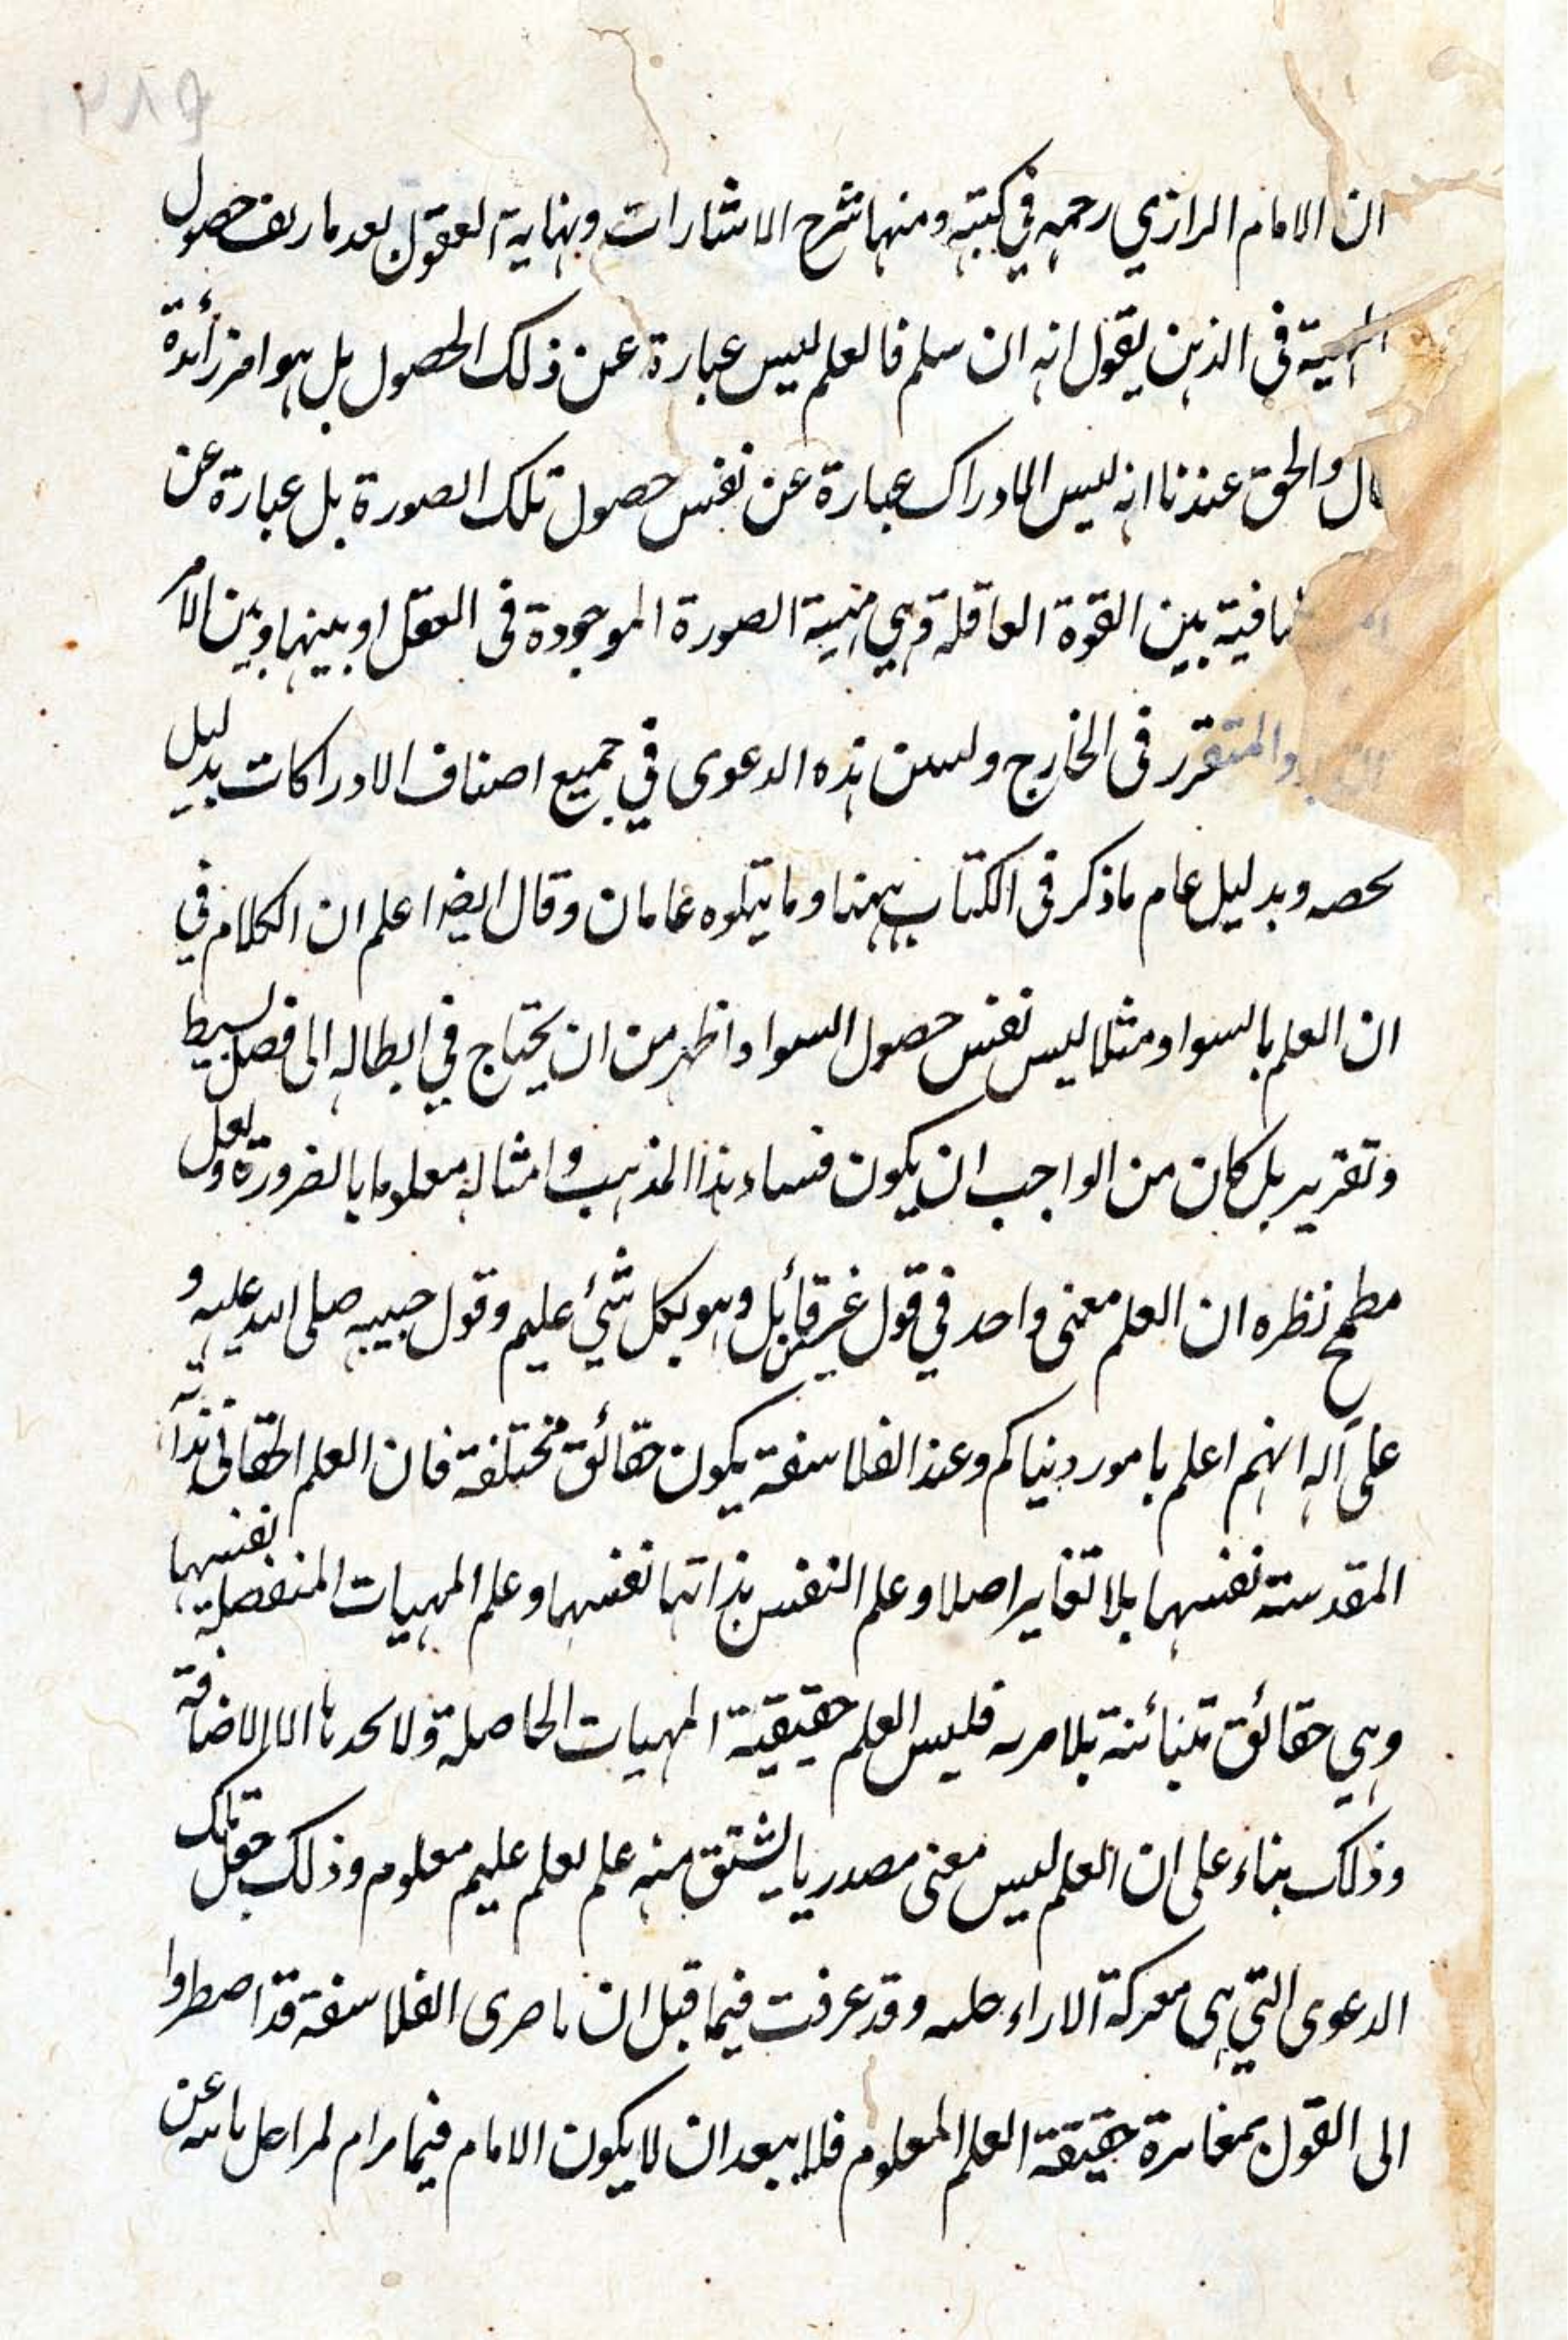 ٢٨٩
ان الامام الرازي رحمه في كتبه ومنها شرح الاشارات ونهاية العقول بعد ما ريف حصول
المهية في الذهن يقول انه ان سلم فالعلم ليس عبارة عن ذلك الحصول بل هو امر زائدة
قال والحق عندنا انه ليس الادراك عبارة عن نفس حصول تلك الصورة بل عبارة عن
بين القوة العاقلة وهي مهية الصورة الموجودة في العقل او بينها وبين الامر
والمتقرر في الخارج وليس هذه الدعوى في جميع اصناف الادراكات بدليل
يخصه وبدليل عام ما ذكر في الكتاب ههنا وما يتلوه عامان وقال ايضا اعلم ان الكلام في
ان العلم بالسواد مثلا ليس نفس حصول السواد اظهر من ان يحتاج في ابطاله الى فصل بسيط
وتقرير بل كان من الواجب ان يكون فساد هذا المذهب وامثاله معلوما بالضرورة ولعل
مطمح نظره ان العلم معنى واحد في قول عز من قائل وهو بكل شئ عليم وقول حبيبه صلى الله عليه و
على آله انهم اعلم بامور دنياكم وعند الفلاسفة يكون حقائق مختلفة فان العلم الحقاني ذاته
المقدسة نفسها بلا تغاير اصلا وعلم النفس بذاتها نفسها وعلم المهيات المنفصلة نفسها
وهي حقائق متبائنة بلا مرية فليس العلم حقيقية المهيات الحاصلة ولا يحد بها الا الاضافة
وذلك بناء على ان العلم ليس معنى مصدريا يشتق منه علم يعلم عليم معلوم وذلك جعل تلك
الدعوى التي هي معركة الاراء وقد عرفت فيما قبل ان ناصرى الفلاسفة قد اضطروا
الى القول بمغايرة حقيقة العلم المعلوم فلا يبعد ان لا يكون الامام فيما رام عن